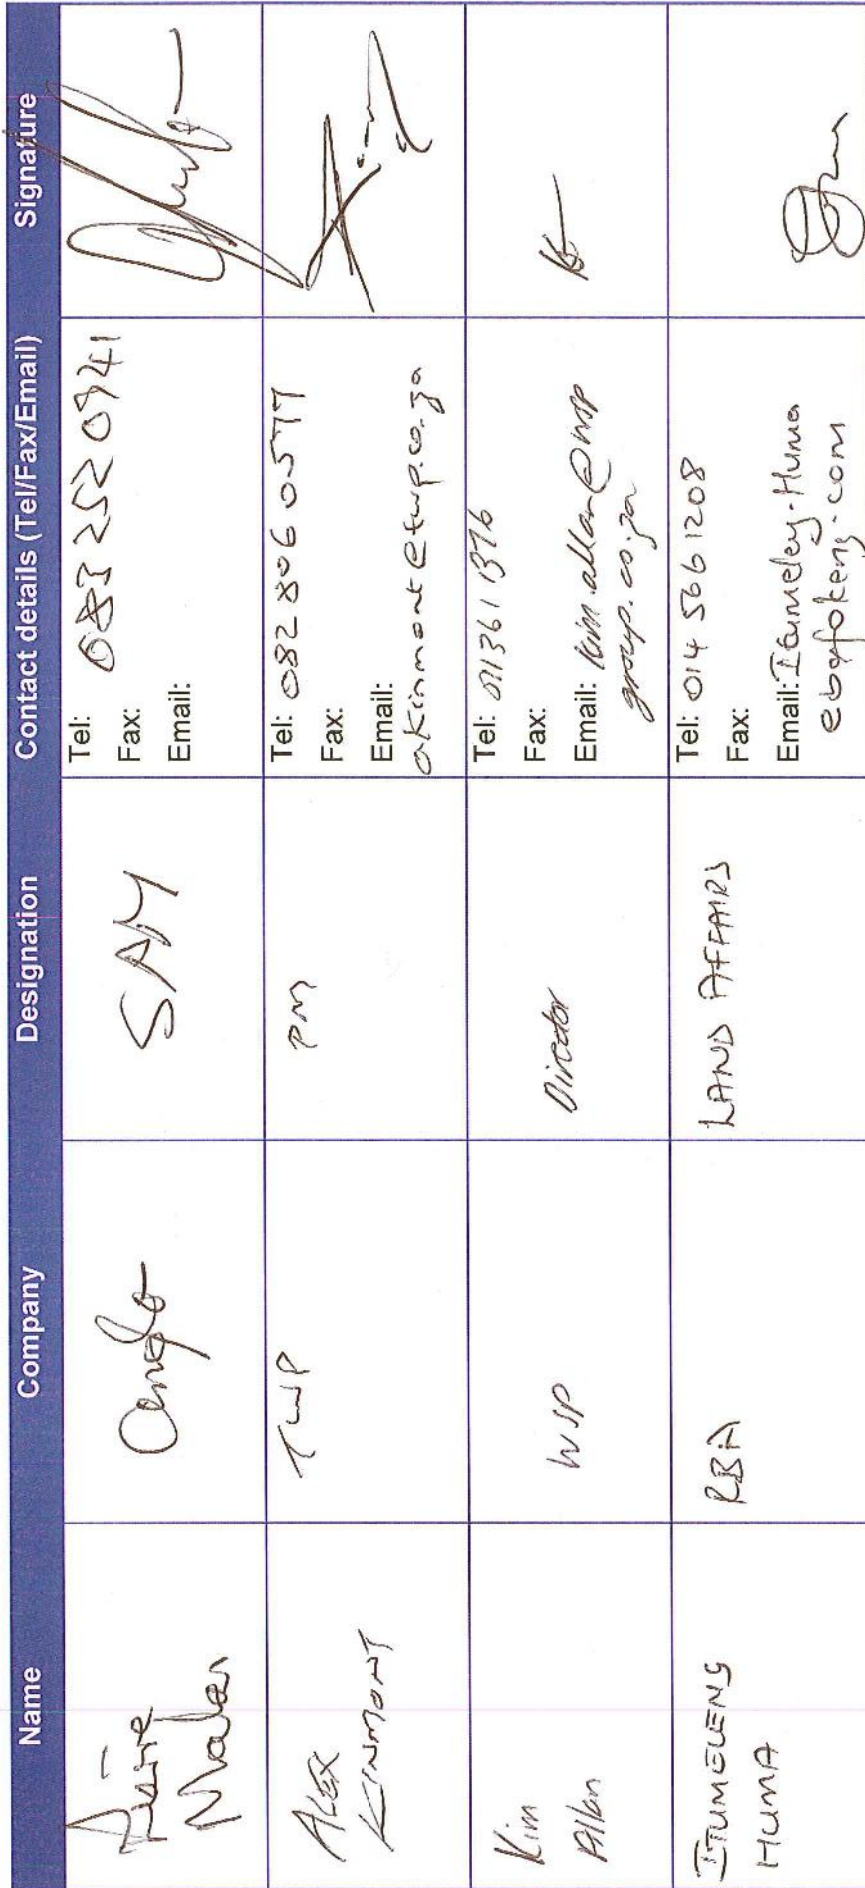 Name Company Designation Contact details (Tel/Fax/Email) Signature
Anglo SAM Tel: 083 252 0941
Fax:
Email:
ALEX
KINMONT
TWP PM Tel: 082 806 0577
Fax:
Email:
akinmont@twp.co.za
Kim
Allan
WSP Director Tel: 011361 1376
Fax:
Email: kim.allan@wsp
group.co.za
ITUMELENG
HUMA
RBA LAND AFFAIRS Tel: 014 566 1208
Fax:
Email: Itumeleng.Huma
@bafokeng.com